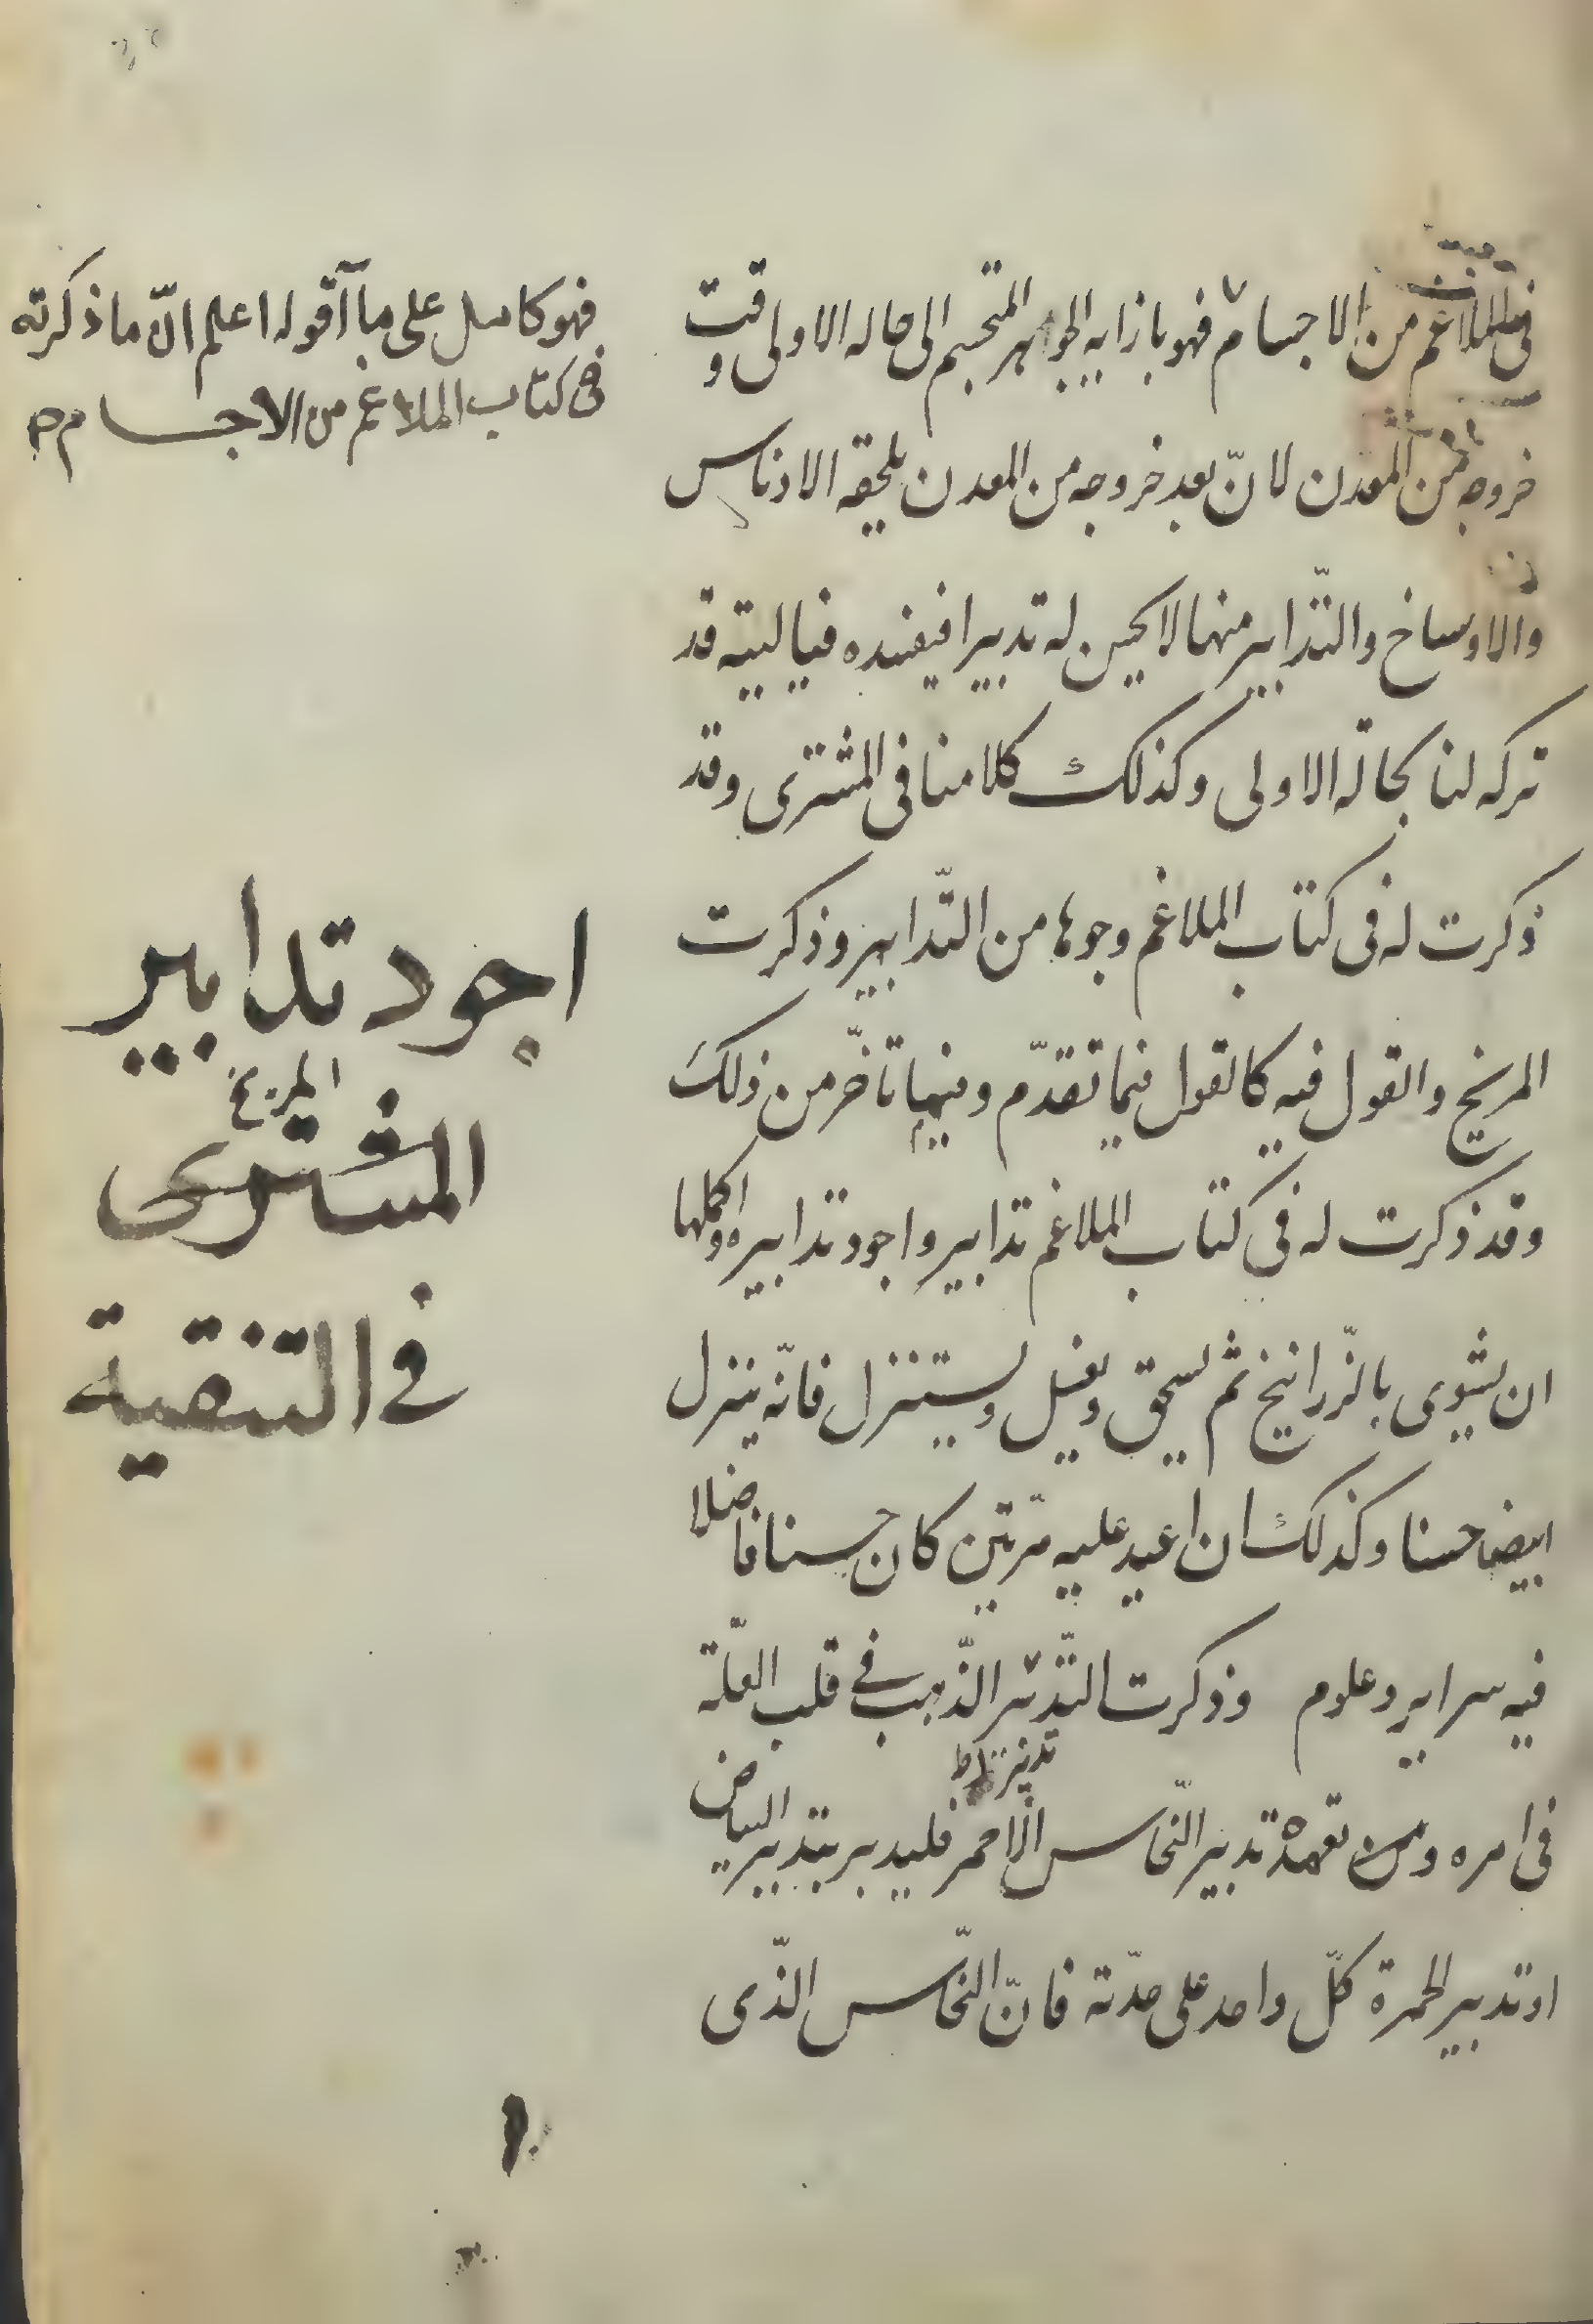 في الملاغم من الاجسام فهو بازايه الجواهر المتجسم الى حاله الاولى وقت
خروجه من المعدن لانّ بعد خروجه من المعدن يلحقه الادناس
والاوساخ والتّدابير منها لا يحسن له تدبيرا فيفسده فياليته قد
تركه لنا بحاله الاولى وكذلك كلامنا فى المشترى وقد
ذكرت له فى كتاب الملاغم وجوها من التّدابير وذكرت
المريخ والقول فيه كالقول فيما تقدّم وفيما تأخّر من ذلك
وقد ذكرت له في كتاب الملاغم تدابير واجود تدابيره واكملها
ان يشوى بالزّرانيخ ثم يسحق ويغسل ويستنزل فانّه ينزل
ابيضا حسنا وكذلك ان اعيد عليه مرّتين كان حسنا فاضلا
فيه سراير وعلوم وذكرت الذّهب في قلب العلّة
فى امره ومن تعمده تدبير النّحاس الاحمر فليدبر بتدبير البياض
او تدبير الحمرة كلّ واحد على حدّته فانّ النّحاس الذّى
فهو كامل على ما أقوله اعلم انّ ما ذكرته
فى كتاب الملاغم من الاجسام صح
اجود تدابير
المريخ
المشترى
في التنقية